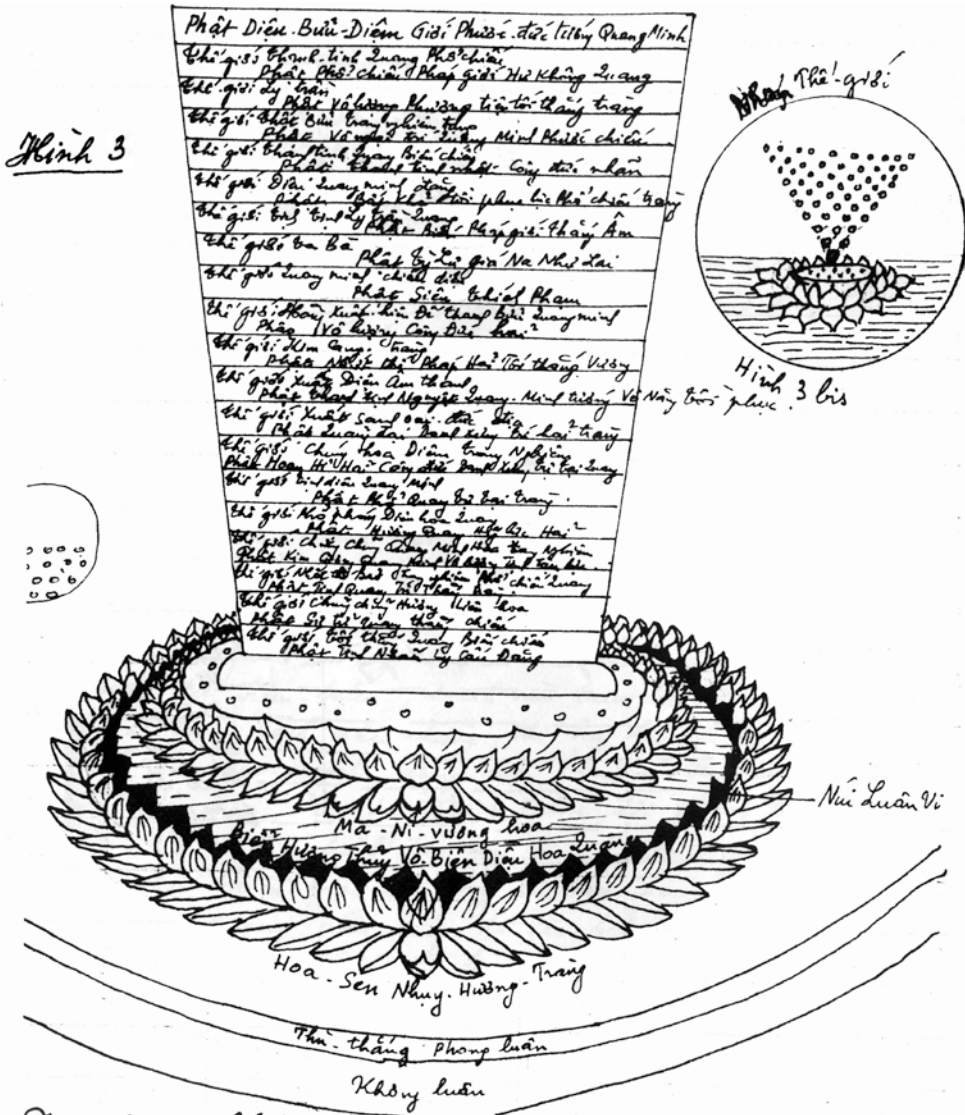 Phật Diệu-Bửu-Diệm Giới Phước-đức tướng Quang Minh
thế giới thanh-tịnh quang Phổ chiếu
Phật Phổ chiếu Pháp giới Hư Không quang
thế giới Ly trần
Phật Vô lượng Phương tiện tối thắng tràng
thế giới thất Bửu trang nghiêm tạng
Phật Vô ngại trí Quang Minh Phước chiếu
thế giới thanh tịnh quang Biến chiếu
Phật thanh tịnh nhật Công đức nhãn
thế giới Diệu quang minh tạng
Phật Bất khả tồi phục lực Phổ chiếu tràng
thế giới tịnh Ly trần quang
Phật Biến Pháp giới thắng Âm
thế giới ta Bà
Phật Tỳ Lô giá Na Như Lai
thế giới quang minh chiếu diệu
Phật Siêu thích Phạm
thế giới Hằng Xuất hiện Đế thanh bửu quang minh
Phật Vô lượng Công Đức hải
thế giới Kim Cang tràng
Phật Nhứt thiết Pháp Hải Tối thắng Vương
thế giới Xuất Diệu Âm thanh
Phật thanh tịnh Nguyệt quang Minh tướng Vô Năng tồi phục
thế giới Xuất sanh oai đức địa
Phật quảng đại Danh xưng trí hải tràng
thế giới Chúng hoa Diệm trang Nghiêm
Phật Hoan Hỉ Hải Công đức Danh xưng tự tại quang
thế giới tịnh diệu quang Minh
Phật Phổ quang tự tại tràng
thế giới Nhạ Diệm hoa quang
Phật Hương Quang Hỷ lực Hải
thế giới
Phật Kim Quang Vô lượng lực
thế giới
Phật
thế giới Chúng Hương liên hoa
Phật Sư tử quang thắng chiếu
thế giới tối thắng quang Biến chiếu
Phật Tịnh Nhãn Ly Cấu Đăng
Hình 3
Thế-giới
Hình 3 bis
Núi Luân Vi
Ma-Ni-vương hoa
Biển Hương Thủy Vô-Biên Diệu Hoa Quang
Hoa-Sen Nhụy-Hương-Tràng
Thù-thắng Phong luân
Không luân